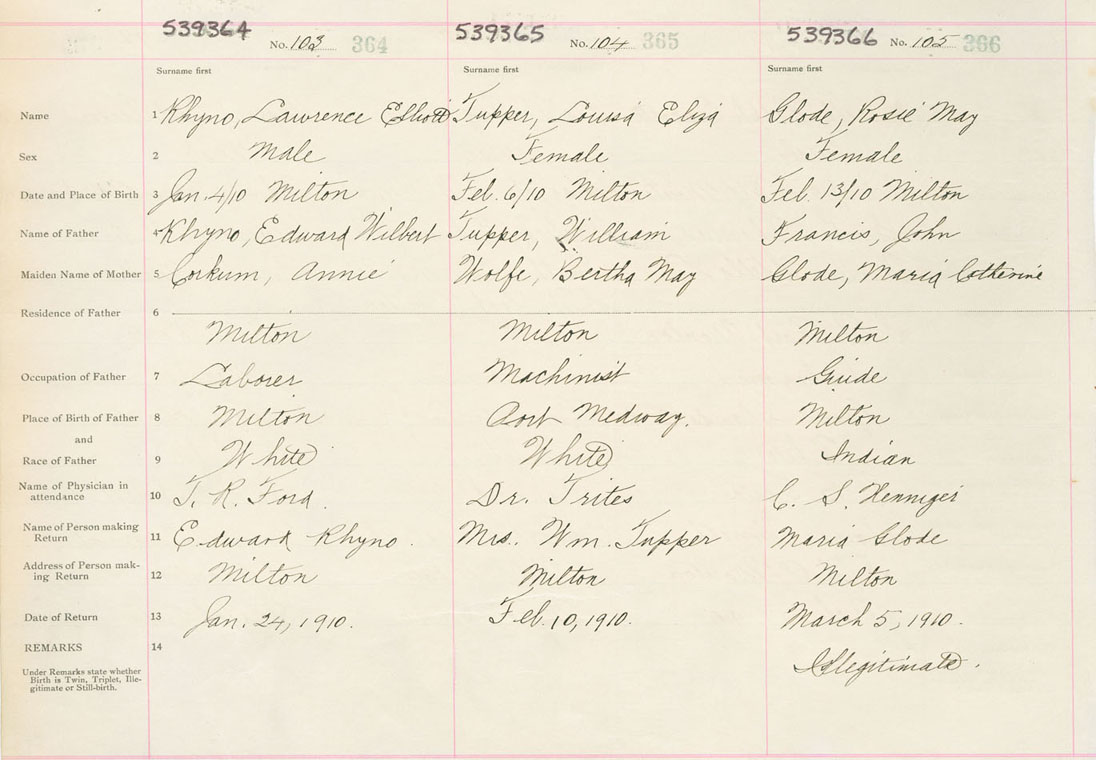 539364 No. 103 364 539365 No. 104 365 539366 No. 105 366
Surname first Surname first Surname first
Name 1 Rhyno, Lawrence Elliott Tupper, Louisa Eliza Glode, Rosie May
Sex 2 Male Female Female
Date and Place of Birth 3 Jan. 4/10 Milton Feb. 6/10 Milton Feb. 13/10 Milton
Name of Father 4 Rhyno, Edward Wilbert Tupper, William Francis, John
Maiden Name of Mother 5 Corkum, Annie Wolfe, Bertha May Glode, Maria Catherine
Residence of Father 6
Milton Milton Milton
Occupation of Father 7 Laborer Machinist Guide
Place of Birth of Father 8 Milton Port Medway. Milton
and
Race of Father 9 White White Indian
Name of Physician in
attendance 10 T. R. Ford. Dr. Trites C. S. Henniger
Name of Person making
Return 11 Edward Rhyno. Mrs. Wm. Tupper Maria Glode
Address of Person mak-
ing Return 12 Milton Milton Milton
Date of Return 13 Jan. 24, 1910. Feb. 10, 1910. March 5, 1910.
REMARKS 14
Illegitimate.
Under Remarks state whether
Birth is Twin, Triplet, Ille-
gitimate or Still-birth.